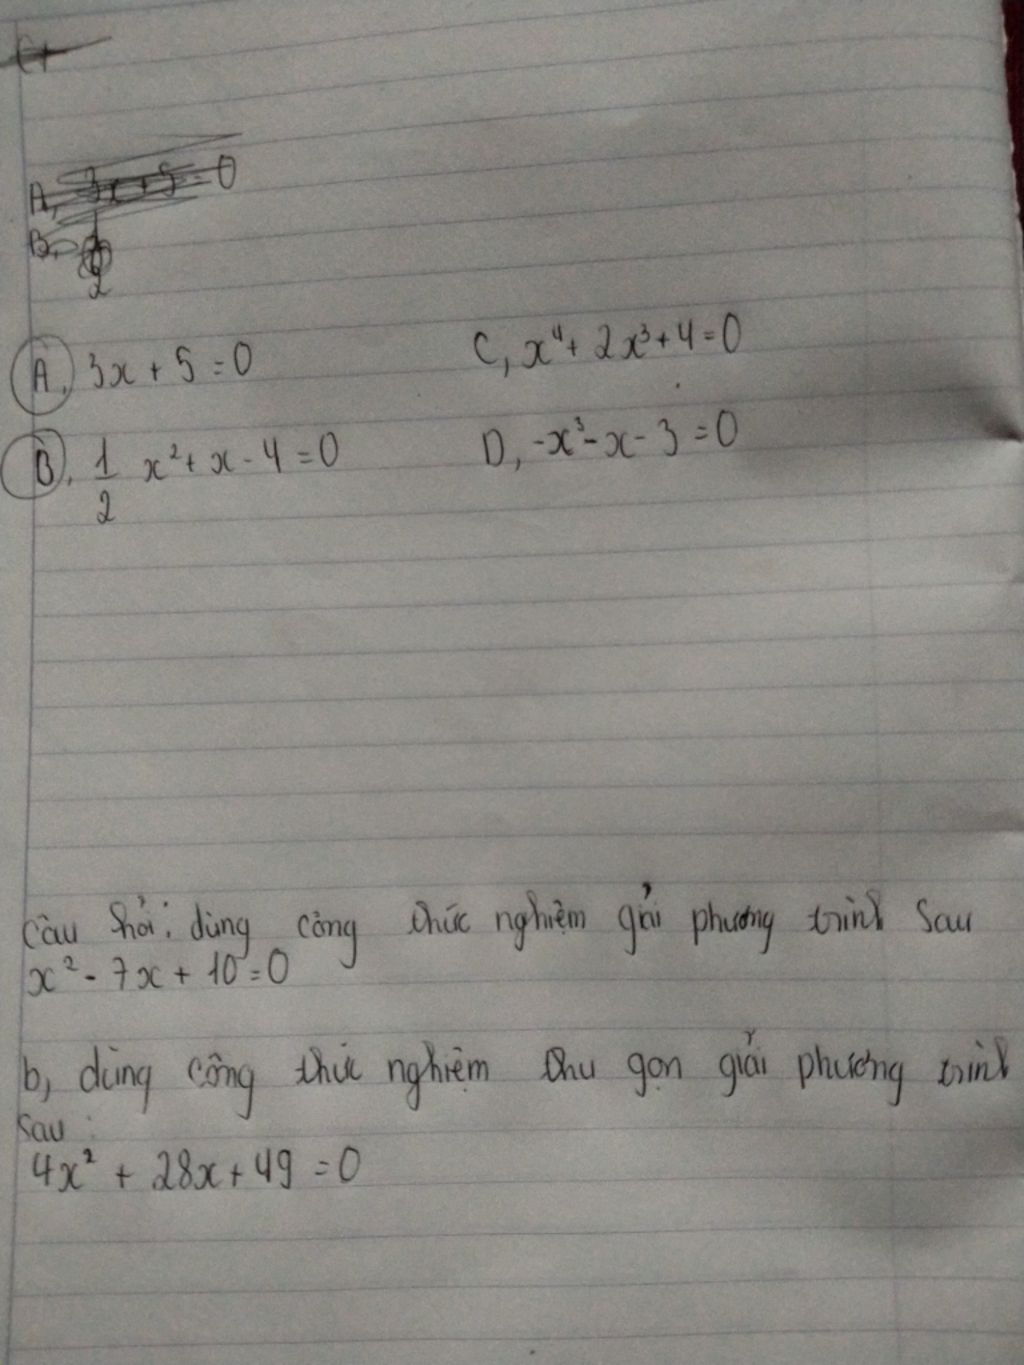 A, 3x + 5 = 0
B,
2
A, 3x + 5 = 0
C, x⁴ + 2x³ + 4 = 0
B, 1/2 x² + x - 4 = 0
D, -x³ - x - 3 = 0
câu hỏi: dùng công thức nghiệm giải phương trình sau
x² - 7x + 10 = 0
b, dùng công thức nghiệm thu gọn giải phương trình
sau:
4x² + 28x + 49 = 0